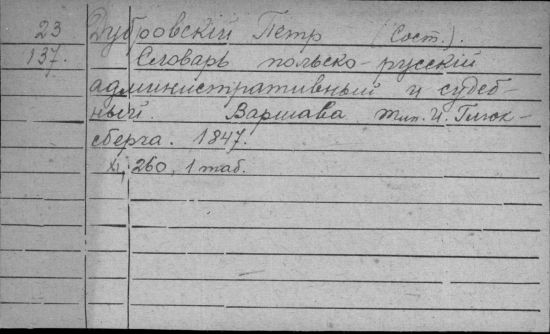 23 Дубровскій Петр (Сост.).
137. Словарь польско-русскій
административный и судеб-
ный. Варшава тип. И. Глюк-
сберга. 1847.
XI, 260, 1 таб.